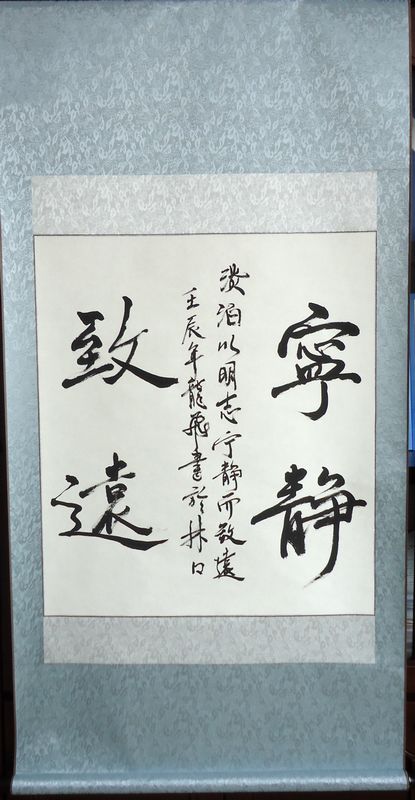 寧靜
淡泊以明志宁静而致遠
壬辰年龍飛書於林口
致遠